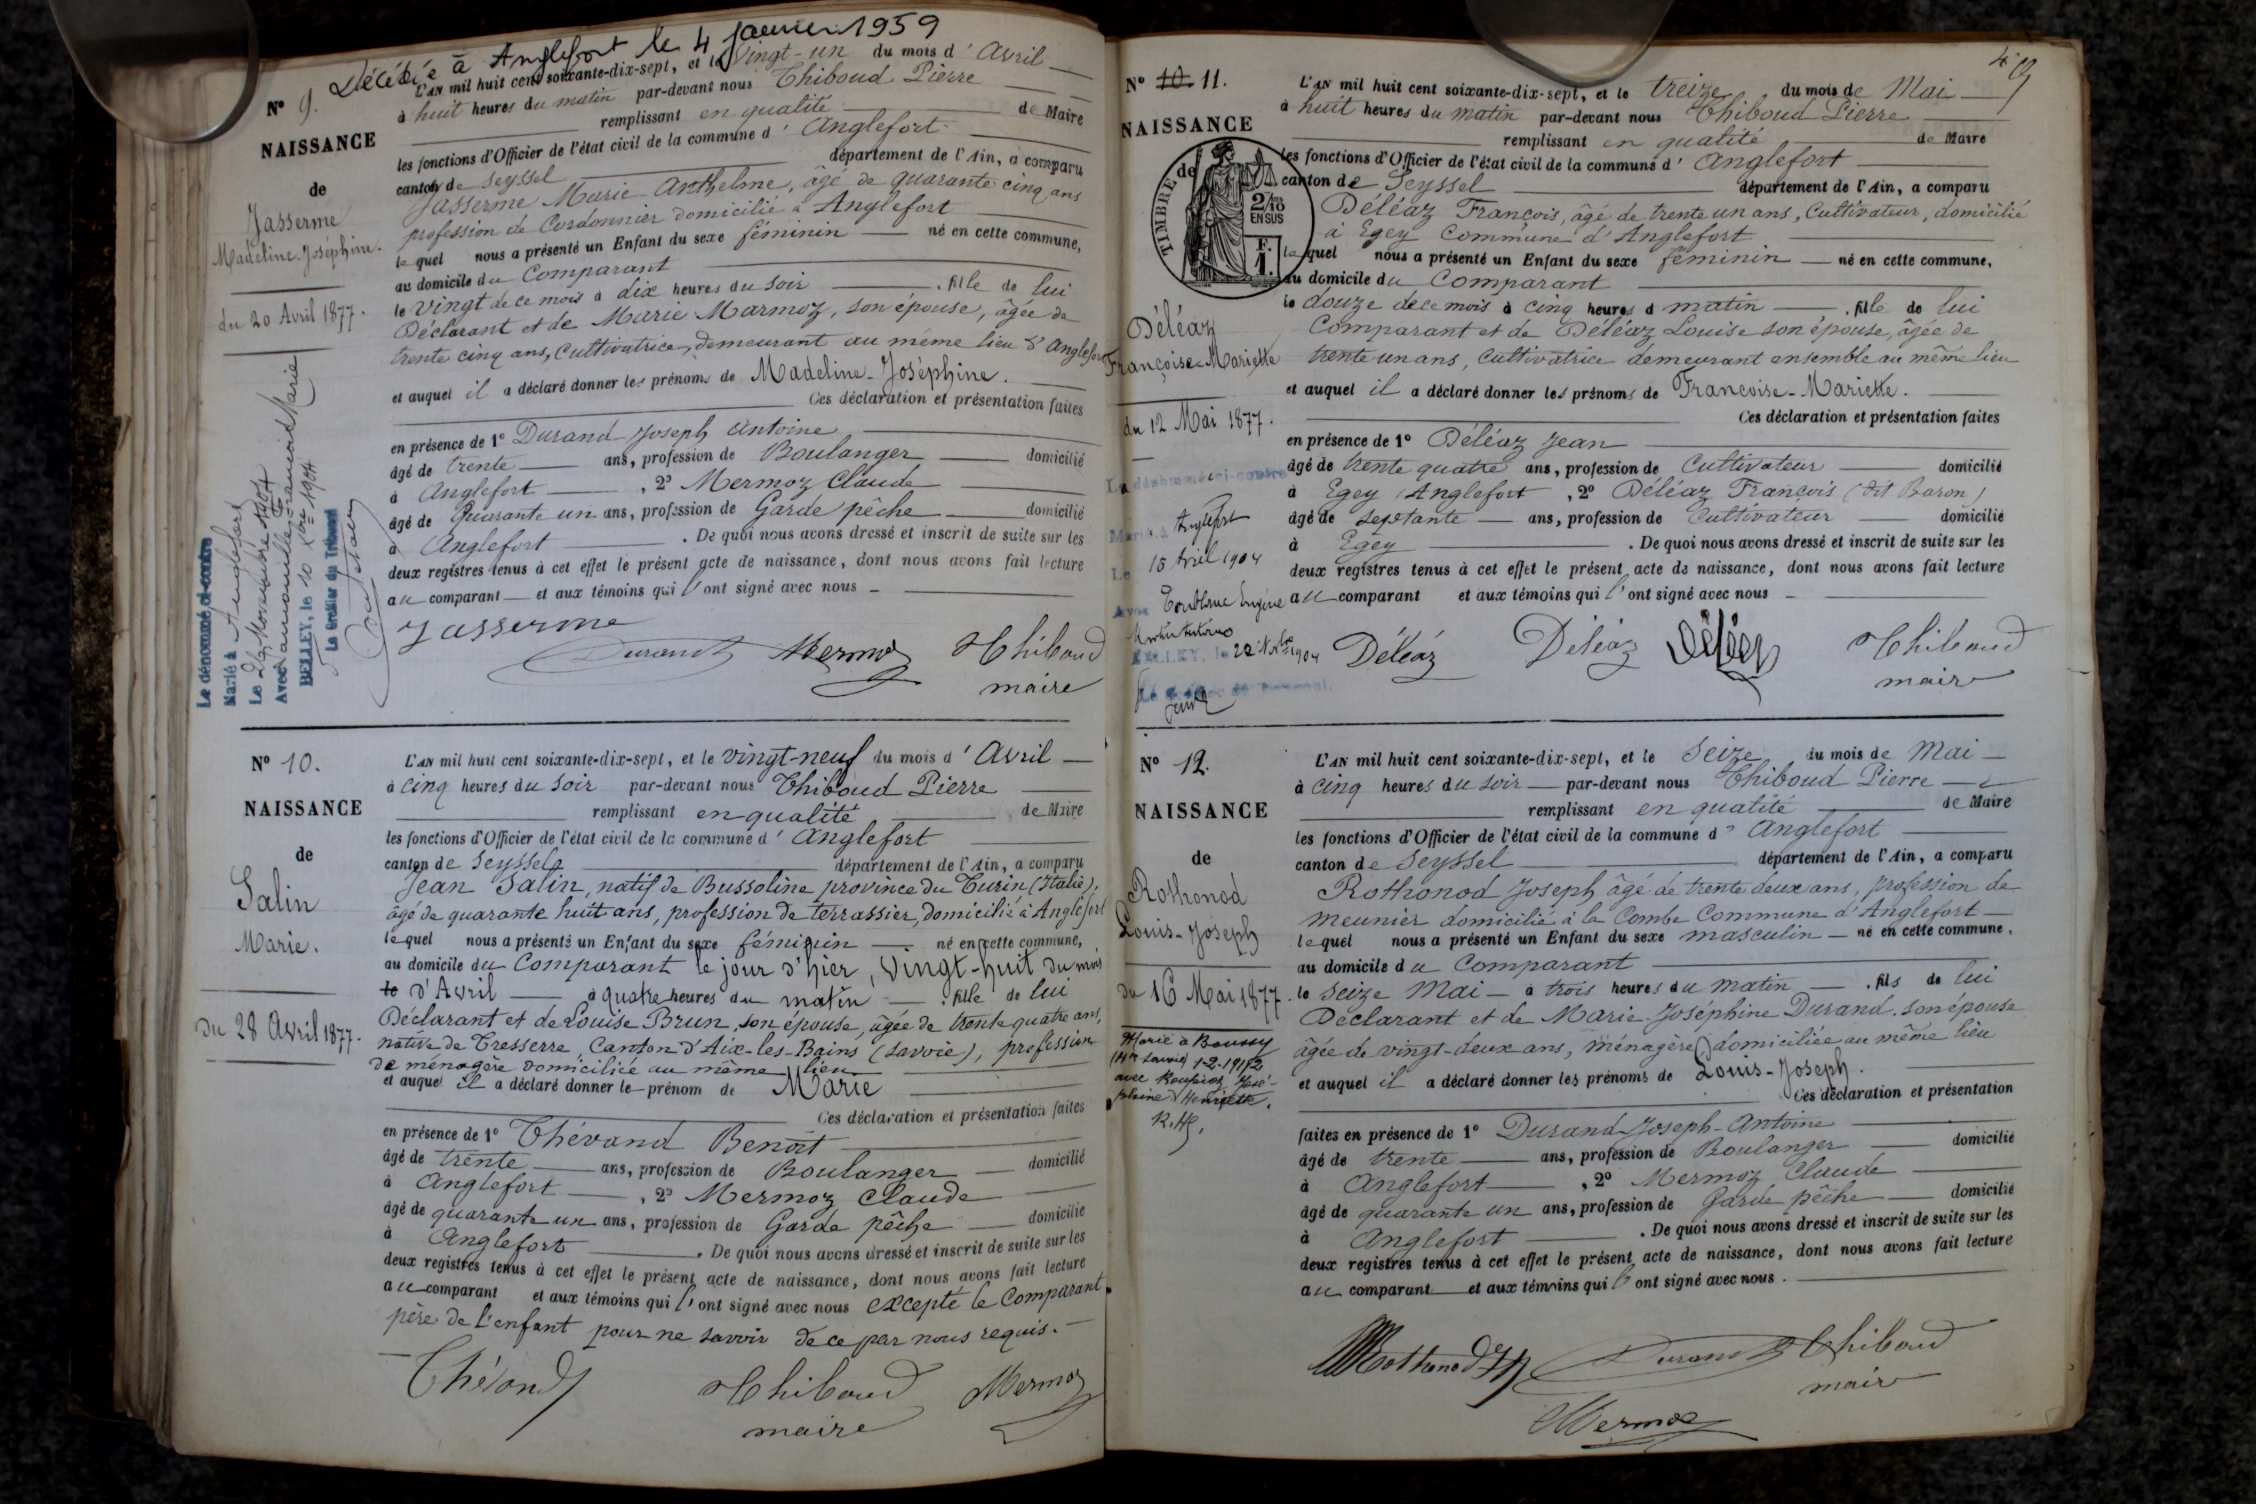 Décédée à Anglefort le 4 janvier 1959
N° 9.
NAISSANCE
de
Jasserme
Madeline-Joséphine.
du 20 Avril 1877.
Le dénommé ci-contre
Marié à Anglefort
Le 26 Novembre 1904
Avec
BELLEY, le 10 Xbre 1904
Le Greffier du Tribunal
L'AN mil huit cent soixante-dix-sept, et le vingt-un du mois d'Avril
à huit heures du matin par-devant nous Thiboud Pierre
remplissant en qualité de Maire
les fonctions d'Officier de l'état civil de la commune d'Anglefort
canton de Seyssel département de l'Ain, a comparu
Jasserme Marie Anthelme, âgé de quarante cinq ans
profession de Cordonnier domicilié à Anglefort
lequel nous a présenté un Enfant du sexe féminin né en cette commune,
au domicile du Comparant
le vingt de ce mois à dix heures du soir . fille de lui
Déclarant et de Marie Marmoz, son épouse, âgée de
trente cinq ans, Cultivatrice, demeurant au même lieu d'Anglefort
et auquel il a déclaré donner les prénoms de Madeline-Joséphine.
Ces déclaration et présentation faites
en présence de 1° Durand Joseph Antoine
âgé de trente ans, profession de Boulanger domicilié
à Anglefort , 2° Mermoz Claude
âgé de Quarante un ans, profession de Garde pêche domicilié
à Anglefort . De quoi nous avons dressé et inscrit de suite sur les
deux registres tenus à cet effet le présent acte de naissance, dont nous avons fait lecture
au comparant et aux témoins qui l'ont signé avec nous
Jasserme
Durand Mermoz Thiboud
maire
N° 10.
NAISSANCE
de
Salin
Marie.
du 28 Avril 1877.
L'AN mil huit cent soixante-dix-sept, et le vingt-neuf du mois d'Avril
à cinq heures du soir par-devant nous Thiboud Pierre
remplissant en qualité de Maire
les fonctions d'Officier de l'état civil de la commune d'Anglefort
canton de Seyssel département de l'Ain, a comparu
Jean Salin, natif de Bussoline province du Turin (Italie),
âgé de quarante huit ans, profession de terrassier, domicilié à Anglefort
lequel nous a présenté un Enfant du sexe féminin né en cette commune,
au domicile du Comparant le jour d'hier, vingt-huit du mois
le d'Avril à quatre heures du matin . fille de lui
Déclarant et de Louise Brun, son épouse, âgée de trente quatre ans,
native de Tresserre, Canton d'Aix-les-Bains (Savoie), profession
de ménagère domiciliée au même lieu
et auquel il a déclaré donner le prénom de Marie
Ces déclaration et présentation faites
en présence de 1° Thévand Benoît
âgé de trente ans, profession de Boulanger domicilié
à Anglefort , 2° Mermoz Claude
âgé de quarante un ans, profession de Garde pêche domicilié
à Anglefort . De quoi nous avons dressé et inscrit de suite sur les
deux registres tenus à cet effet le présent acte de naissance, dont nous avons fait lecture
au comparant et aux témoins qui l'ont signé avec nous excepté le Comparant
père de l'enfant pour ne savoir de ce par nous requis.
Thévand Thiboud Mermoz
maire
N° 10. 11.
NAISSANCE
de
TIMBRE
2/10
EN SUS
F.
1.
Déléaz
Françoise-Mariette
du 12 Mai 1877.
La dénommée ci-contre
Mariée à Anglefort
Le 15 Avril 1904
Avec Eugène
BELLEY, le 22 1904
L'AN mil huit cent soixante-dix-sept, et le treize du mois de Mai
à huit heures du matin par-devant nous Thiboud Pierre
remplissant en qualité de Maire
les fonctions d'Officier de l'état civil de la commune d'Anglefort
canton de Seyssel département de l'Ain, a comparu
Déléaz François, âgé de trente un ans, Cultivateur, domicilié
à Egey Commune d'Anglefort
lequel nous a présenté un Enfant du sexe féminin né en cette commune,
au domicile du Comparant
le douze de ce mois à cinq heures d matin . fille de lui
Comparant et de Déléaz Louise son épouse, âgée de
trente un ans, Cultivatrice demeurant ensemble au même lieu
et auquel il a déclaré donner les prénoms de Françoise-Mariette.
Ces déclaration et présentation faites
en présence de 1° Déléaz Jean
âgé de trente quatre ans, profession de Cultivateur domicilié
à Egey (Anglefort , 2° Déléaz François (dit Baron)
âgé de septante ans, profession de Cultivateur domicilié
à Egey . De quoi nous avons dressé et inscrit de suite sur les
deux registres tenus à cet effet le présent acte de naissance, dont nous avons fait lecture
au comparant et aux témoins qui l'ont signé avec nous
Déléaz Déléaz Déléaz Thiboud
maire
N° 12.
NAISSANCE
de
Rothonod
Louis-Joseph
du 16 Mai 1877.
Marié à Boussy
(Hte Savoie) 1-2-1912
avec José-
phine Henriette.
L'AN mil huit cent soixante-dix-sept, et le seize du mois de Mai
à cinq heures du soir par-devant nous Thiboud Pierre
remplissant en qualité de Maire
les fonctions d'Officier de l'état civil de la commune d'Anglefort
canton de Seyssel département de l'Ain, a comparu
Rothonod Joseph âgé de trente deux ans, profession de
meunier domicilié à la Combe Commune d'Anglefort
lequel nous a présenté un Enfant du sexe masculin né en cette commune,
au domicile du Comparant
le seize Mai à trois heures du matin . fils de lui
Déclarant et de Marie Joséphine Durand son épouse
âgée de vingt-deux ans, ménagère domiciliée au même lieu
et auquel il a déclaré donner les prénoms de Louis-Joseph.
Ces déclaration et présentation
faites en présence de 1° Durand Joseph-Antoine
âgé de trente ans, profession de Boulanger domicilié
à Anglefort , 2° Mermoz Claude
âgé de quarante un ans, profession de Garde pêche domicilié
à Anglefort . De quoi nous avons dressé et inscrit de suite sur les
deux registres tenus à cet effet le présent acte de naissance, dont nous avons fait lecture
au comparant et aux témoins qui l'ont signé avec nous.
Rothonod Durand Thiboud
maire
Mermoz